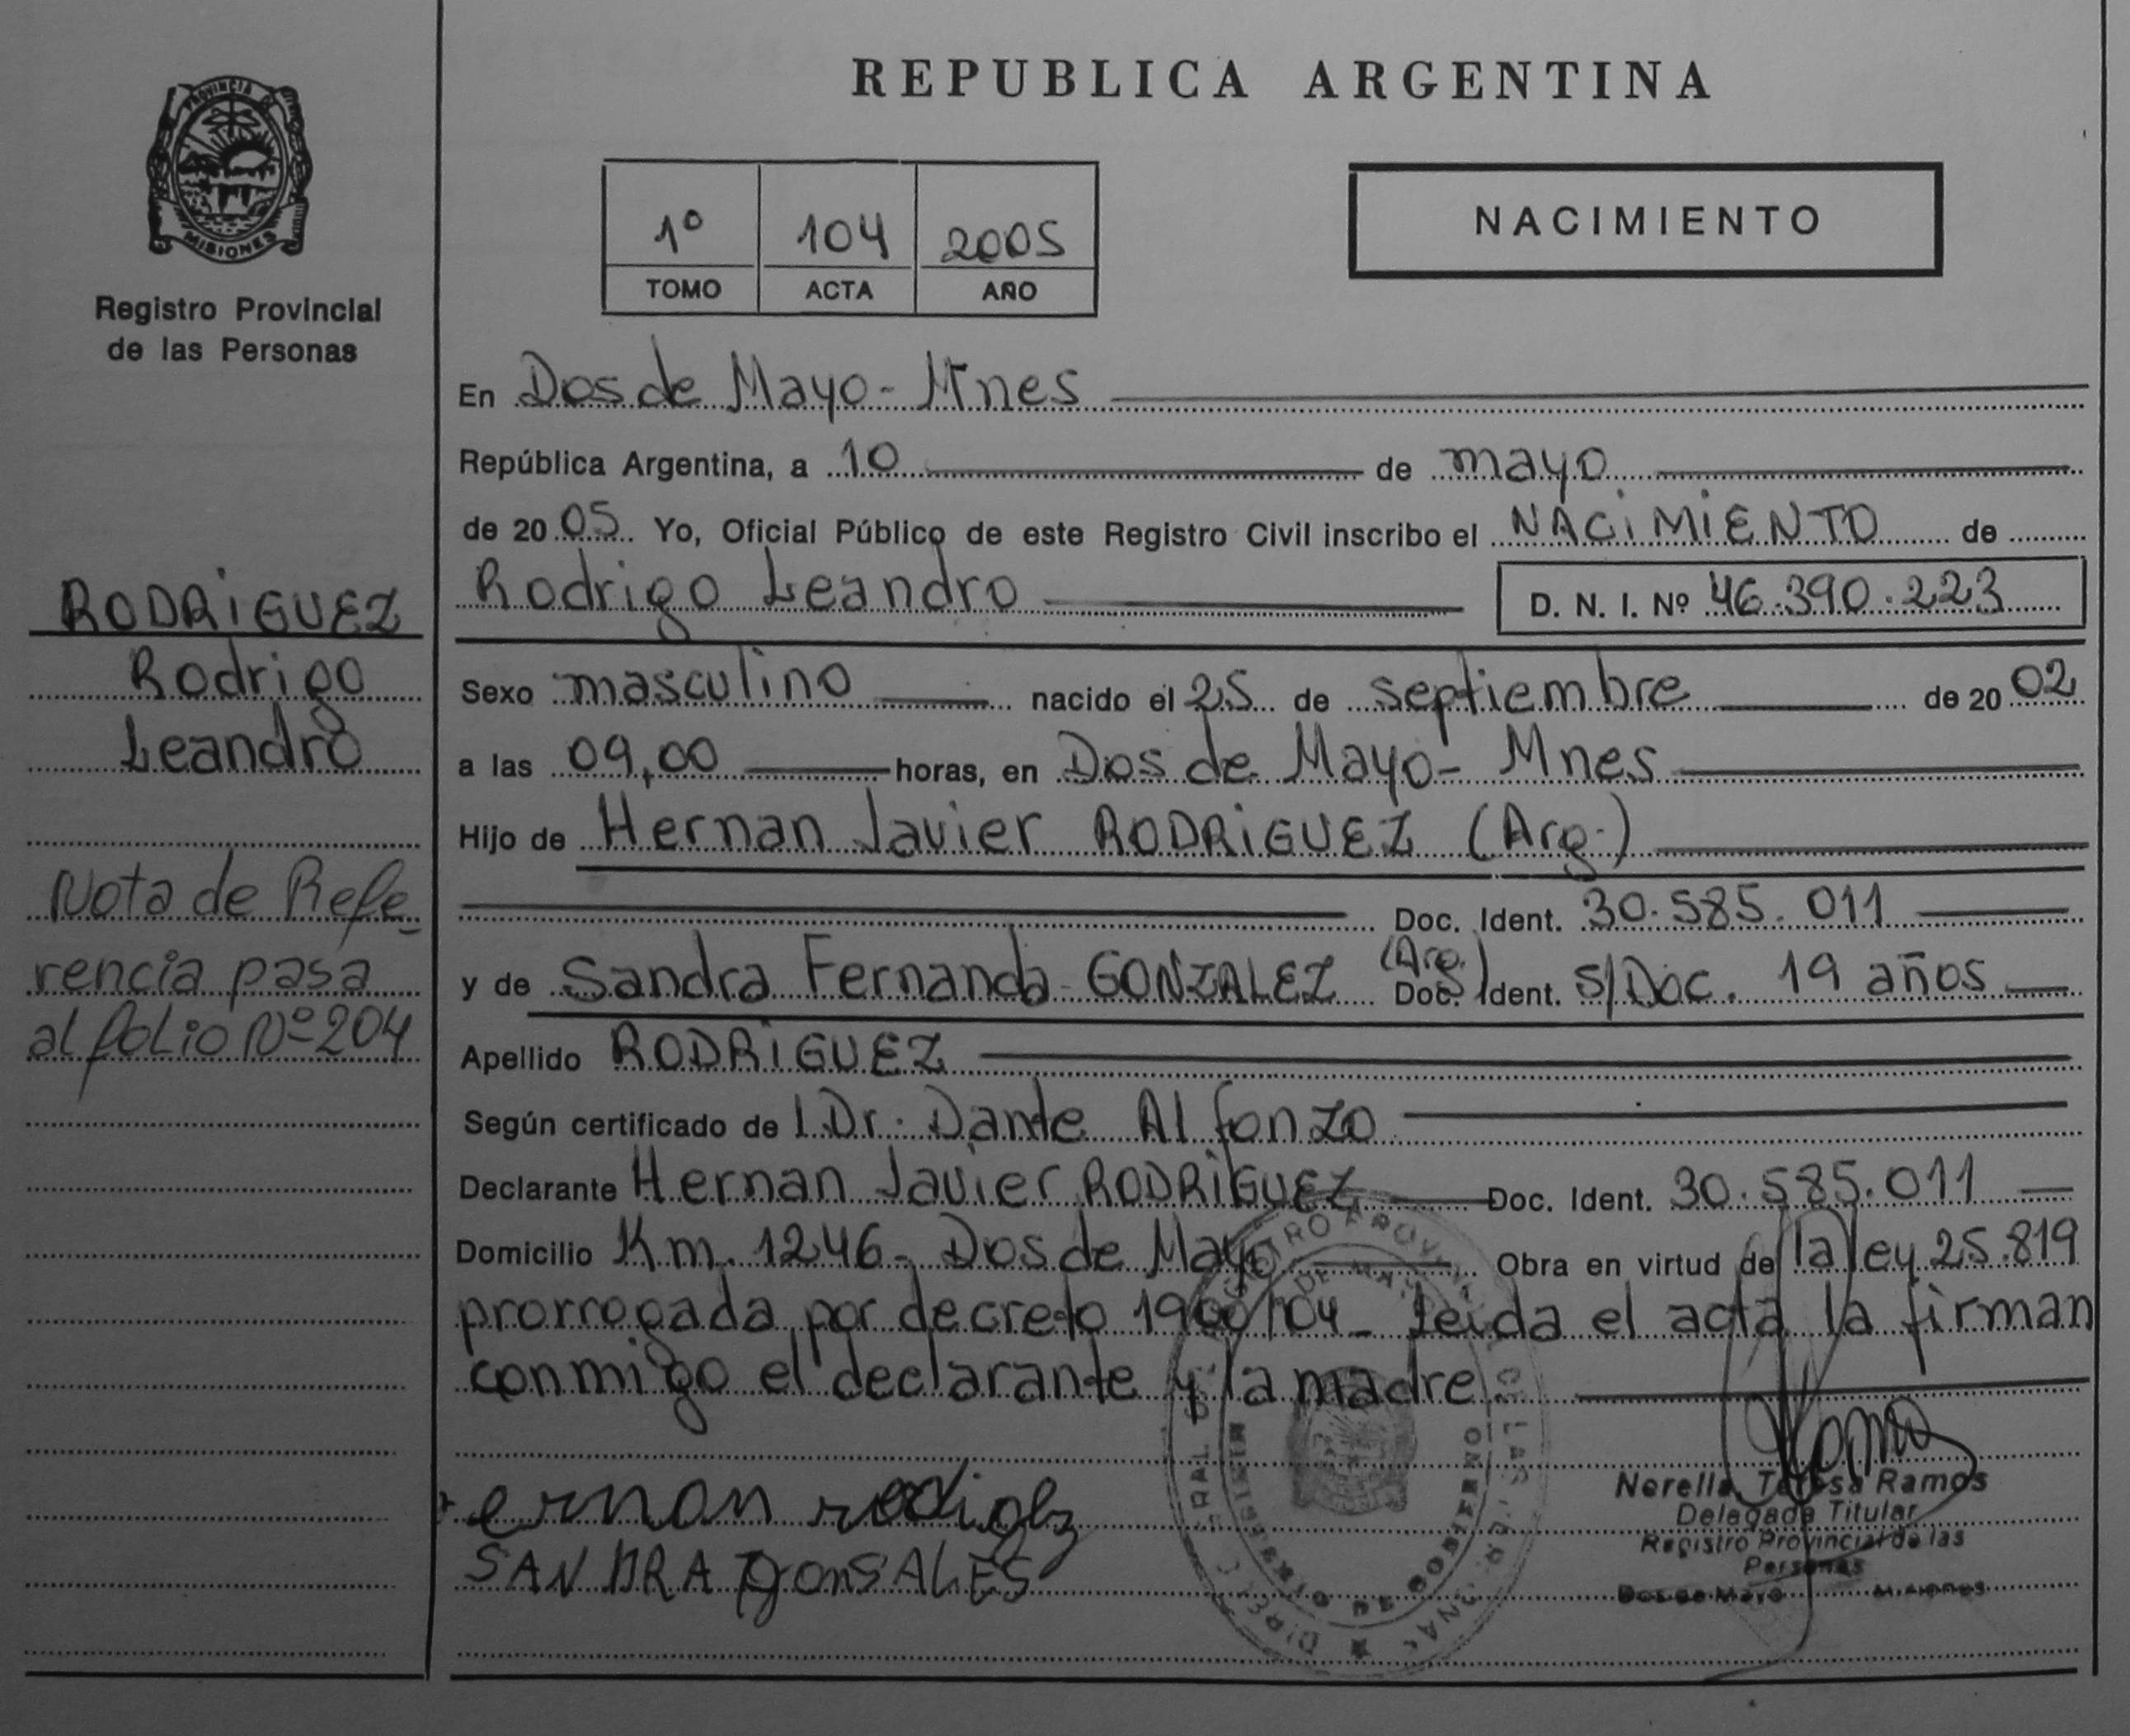 REPUBLICA ARGENTINA
PROVINCIA DE
MISIONES
Registro Provincial
de las Personas
1º 104 2005
TOMO ACTA AÑO
NACIMIENTO
En Dos de Mayo - Mnes
República Argentina, a 10 de mayo
de 20 05 Yo, Oficial Público de este Registro Civil inscribo el NACIMIENTO de
Rodrigo Leandro D. N. I. Nº 46.390.223
RODRIGUEZ
Rodrigo
Leandro
Nota de Refe-
rencia pasa
al folio Nº 204
Sexo masculino nacido el 25 de septiembre de 20 02
a las 09,00 horas, en Dos de Mayo - Mnes
Hijo de Hernan Javier RODRIGUEZ (Arg.)
Doc. Ident. 30.585.011
y de Sandra Fernanda GONZALEZ (Arg.) Doc. Ident. S/Doc. 19 años
Apellido RODRIGUEZ
Según certificado de l Dr. Dante Alfonzo
Declarante Hernan Javier RODRIGUEZ Doc. Ident. 30.585.011
Domicilio Km. 1246 - Dos de Mayo Obra en virtud de la ley 25.819
prorrogada por decreto 1900/04 - Leida el acta la firman
conmigo el declarante y la madre
ernan
SANDRA gonSALES
Norella Teresa Ramos
Delegada Titular
Registro Provincial de las
Personas
Dos de Mayo Misiones